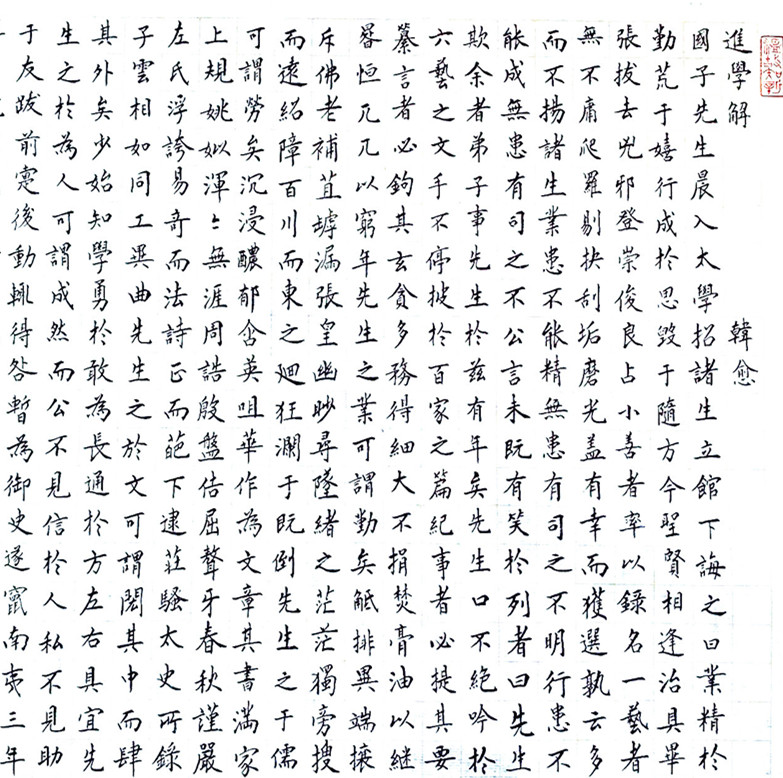 進學解 韓愈
國子先生晨入太學招諸生立館下誨之曰業精於
勤荒于嬉行成於思毀于隨方今聖賢相逢治具畢
張拔去兇邪登崇俊良占小善者率以錄名一藝者
無不庸爬羅剔抉刮垢磨光蓋有幸而獲選孰云多
而不揚諸生業患不能精無患有司之不明行患不
能成無患有司之不公言未既有笑於列者曰先生
欺余者弟子事先生於茲有年矣先生口不絕吟於
六藝之文手不停披於百家之篇紀事者必提其要
纂言者必鉤其玄貪多務得細大不捐焚膏油以継
晷恒兀兀以窮年先生之業可謂勤矣觝排異端攘
斥佛老補苴罅漏張皇幽眇尋墜緒之茫茫獨旁搜
而遠紹障百川而東之迴狂瀾于既倒先生之于儒
可謂勞矣沉浸醲郁含英咀華作為文章其書滿家
上規姚姒渾〻無涯周誥殷盤佶屈聱牙春秋謹嚴
左氏浮誇易奇而法詩正而葩下逮莊騷太史所錄
子雲相如同工異曲先生之於文可謂閎其中而肆
其外矣少始知學勇於敢為長通於方左右具宜先
生之於為人可謂成然而公不見信於人私不見助
于友跋前疐後動輒得咎暫為御史遂竄南夷三年